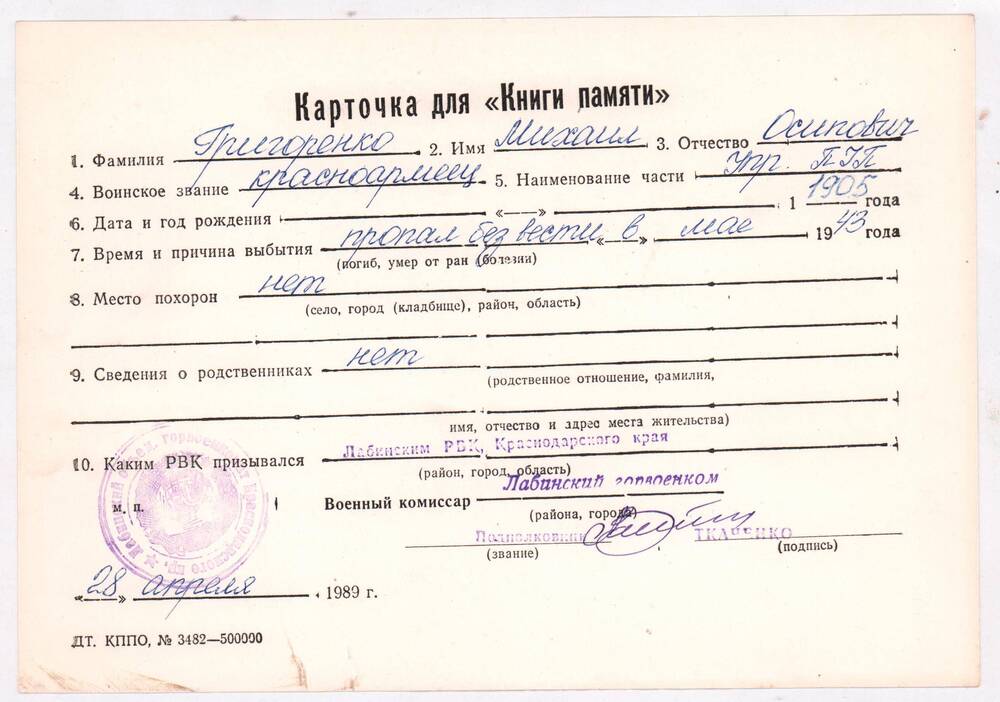 Карточка для «Книги памяти»
1. Фамилия Григоренко 2. Имя Михаил 3. Отчество Осипович
4. Воинское звание красноармеец 5. Наименование части Упр. ПГП
6. Дата и год рождения «——» 1 1905 года
7. Время и причина выбытия пропал без вести в «——» мае 1943 года
(погиб, умер от ран (болезни)
8. Место похорон нет
(село, город (кладбище), район, область)
9. Сведения о родственниках нет
(родственное отношение, фамилия,
имя, отчество и адрес места жительства)
10. Каким РВК призывался Лабинским РВК, Краснодарского края
(район, город, область)
м. п. Военный комиссар Лабинский горвоенком
(района, города)
Подполковник ТКАЧЕНКО
(звание) (подпись)
«28» апреля 1989 г.
ДТ. КППО, № 3482—500000